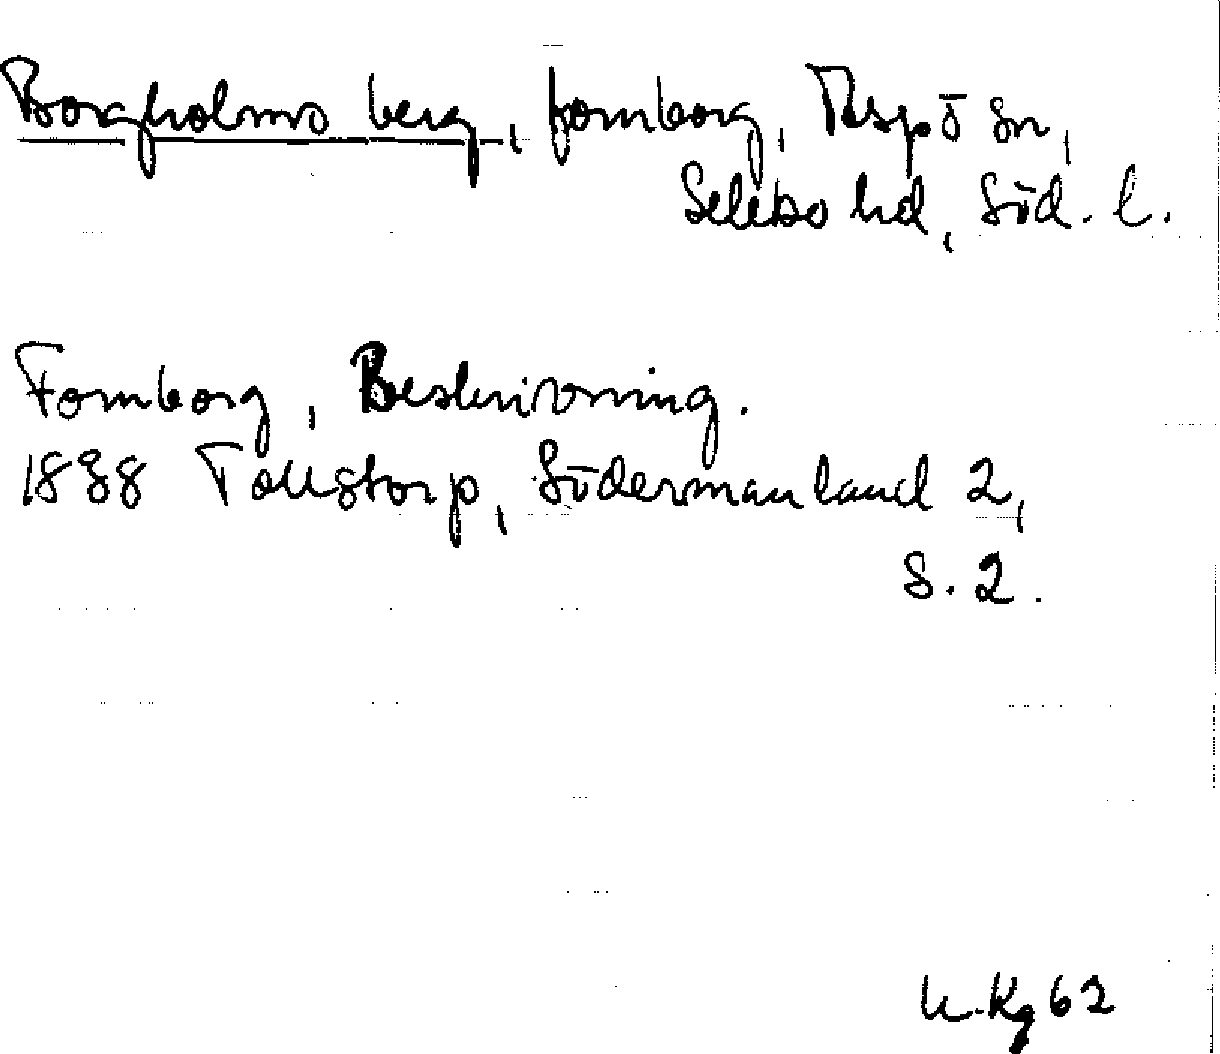 Borgholms berg, fornborg, Aspö sn,
Selebo hd, Söd. l.
Fornborg, Beskrivning.
1888 Tollstorp, Södermanland 2,
S. 2.
K.Kg 62